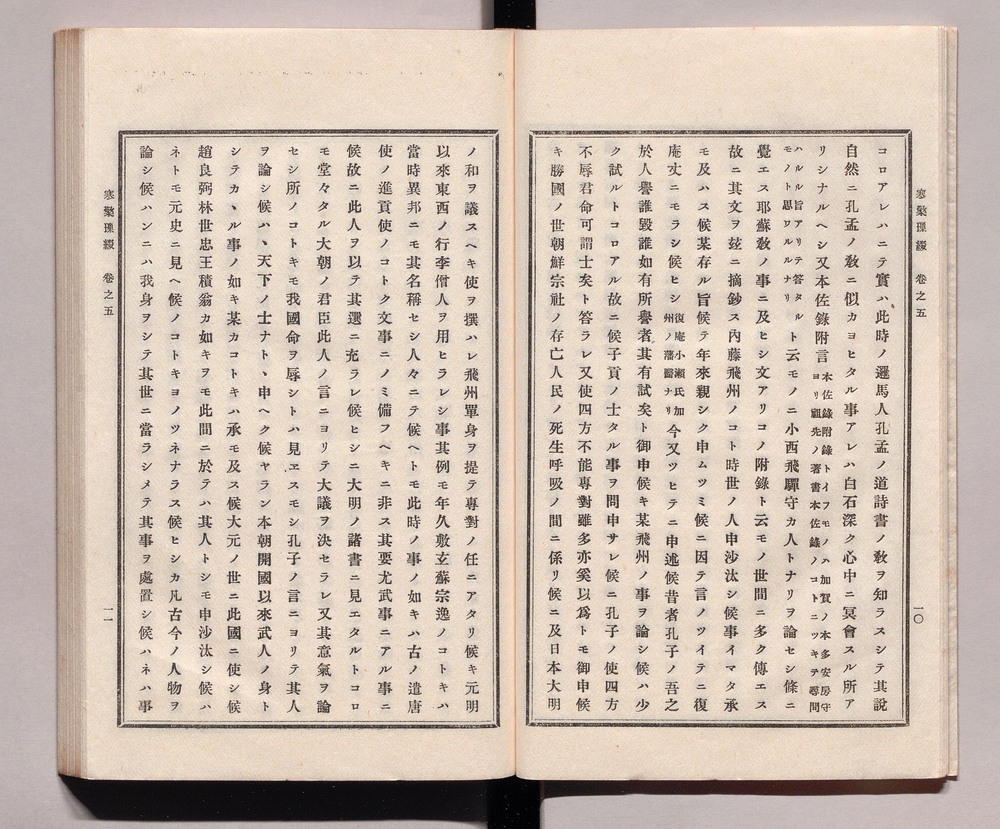 寒檠璅綴 卷之五
一〇
コロアレハニテ實ハ此時ノ邏馬人孔孟ノ道詩書ノ敎ヲ知ラスシテ其說
自然ニ孔孟ノ敎ニ似カヨヒタル事アレハ白石深ク心中ニ冥會スル所ア
リシナルヘシ又本佐錄附言
本佐錄附錄トイフモノハ加賀ノ本多安房守
ヨリ顧先ノ著書本佐錄ノコトニツキテ尋問
ハルル旨アリテ答タル
モノト思ワルルナリ
ト云モノニ小西飛驒守カ人トナリヲ論セシ條ニ
覺エス耶蘇敎ノ事ニ及ヒシ文アリコノ附錄ト云モノ世間ニ多ク傳エス
故ニ其文ヲ玆ニ摘鈔ス內藤飛州ノコト時世ノ人申沙汰シ候事イマタ承
モ及ハス候某存ル旨候テ年來親シク申ムツミ候ニ因テ言ノツイテニ復
庵丈ニモラシ候ヒシ
復庵小瀨氏加
州ノ藩醫ナリ
今又ツヒテニ申述候昔者孔子ノ吾之
於人譽誰毀誰如有所譽者其有試矣ト御申候キ某飛州ノ事ヲ論シ候ハ少
ク試ルトコロアル故ニ候子貢ノ士タル事ヲ問申サレ候ニ孔子ノ使四方
不辱君命可謂士矣ト答ラレ又使四方不能專對雖多亦奚以爲トモ御申候
キ勝國ノ世朝鮮宗社ノ存亡人民ノ死生呼吸ノ間ニ係リ候ニ及日本大明
ノ和ヲ議スヘキ使ヲ撰ハレ飛州單身ヲ提テ專對ノ任ニアタリ候キ元明
以來東西ノ行李僧人ヲ用ヒラレシ事其例モ年久敷玄蘇宗逸ノコトキハ
當時異邦ニモ其名稱セシ人々ニテ候ヘトモ此時ノ事ノ如キハ古ノ遣唐
使ノ進貢使ノコトク文事ニノミ備フヘキニ非ス其要尤武事ニアル事ニ
候故ニ此人ヲ以テ其選ニ充ラレ候ヒシニ大明ノ諸書ニ見エタルトコロ
モ堂々タル大朝ノ君臣此人ノ言ニヨリテ大議ヲ決セラレ又其意氣ヲ論
セシ所ノコトキモ我國命ヲ辱シトハ見ヱスモシ孔子ノ言ニヨリテ其人
ヲ論シ候ハヽ天下ノ士ナトヽ申ヘク候ヤラン本朝開國以來武人ノ身ト
シラカヽル事ノ如キ某カコトキハ承モ及ス候大元ノ世ニ此國ニ使シ候
趙良弼林世忠王積翁カ如キヲモ此間ニ於テハ其人トシモ申沙汰シ候ハ
ネトモ元史ニ見ヘ候ノコトキヨノツネナラス候ヒシカ凡古今ノ人物ヲ
論シ候ハンニハ我身ヲシテ其世ニ當ラシメテ其事ヲ處置シ候ハネハ事
寒檠璅綴 卷之五
一一